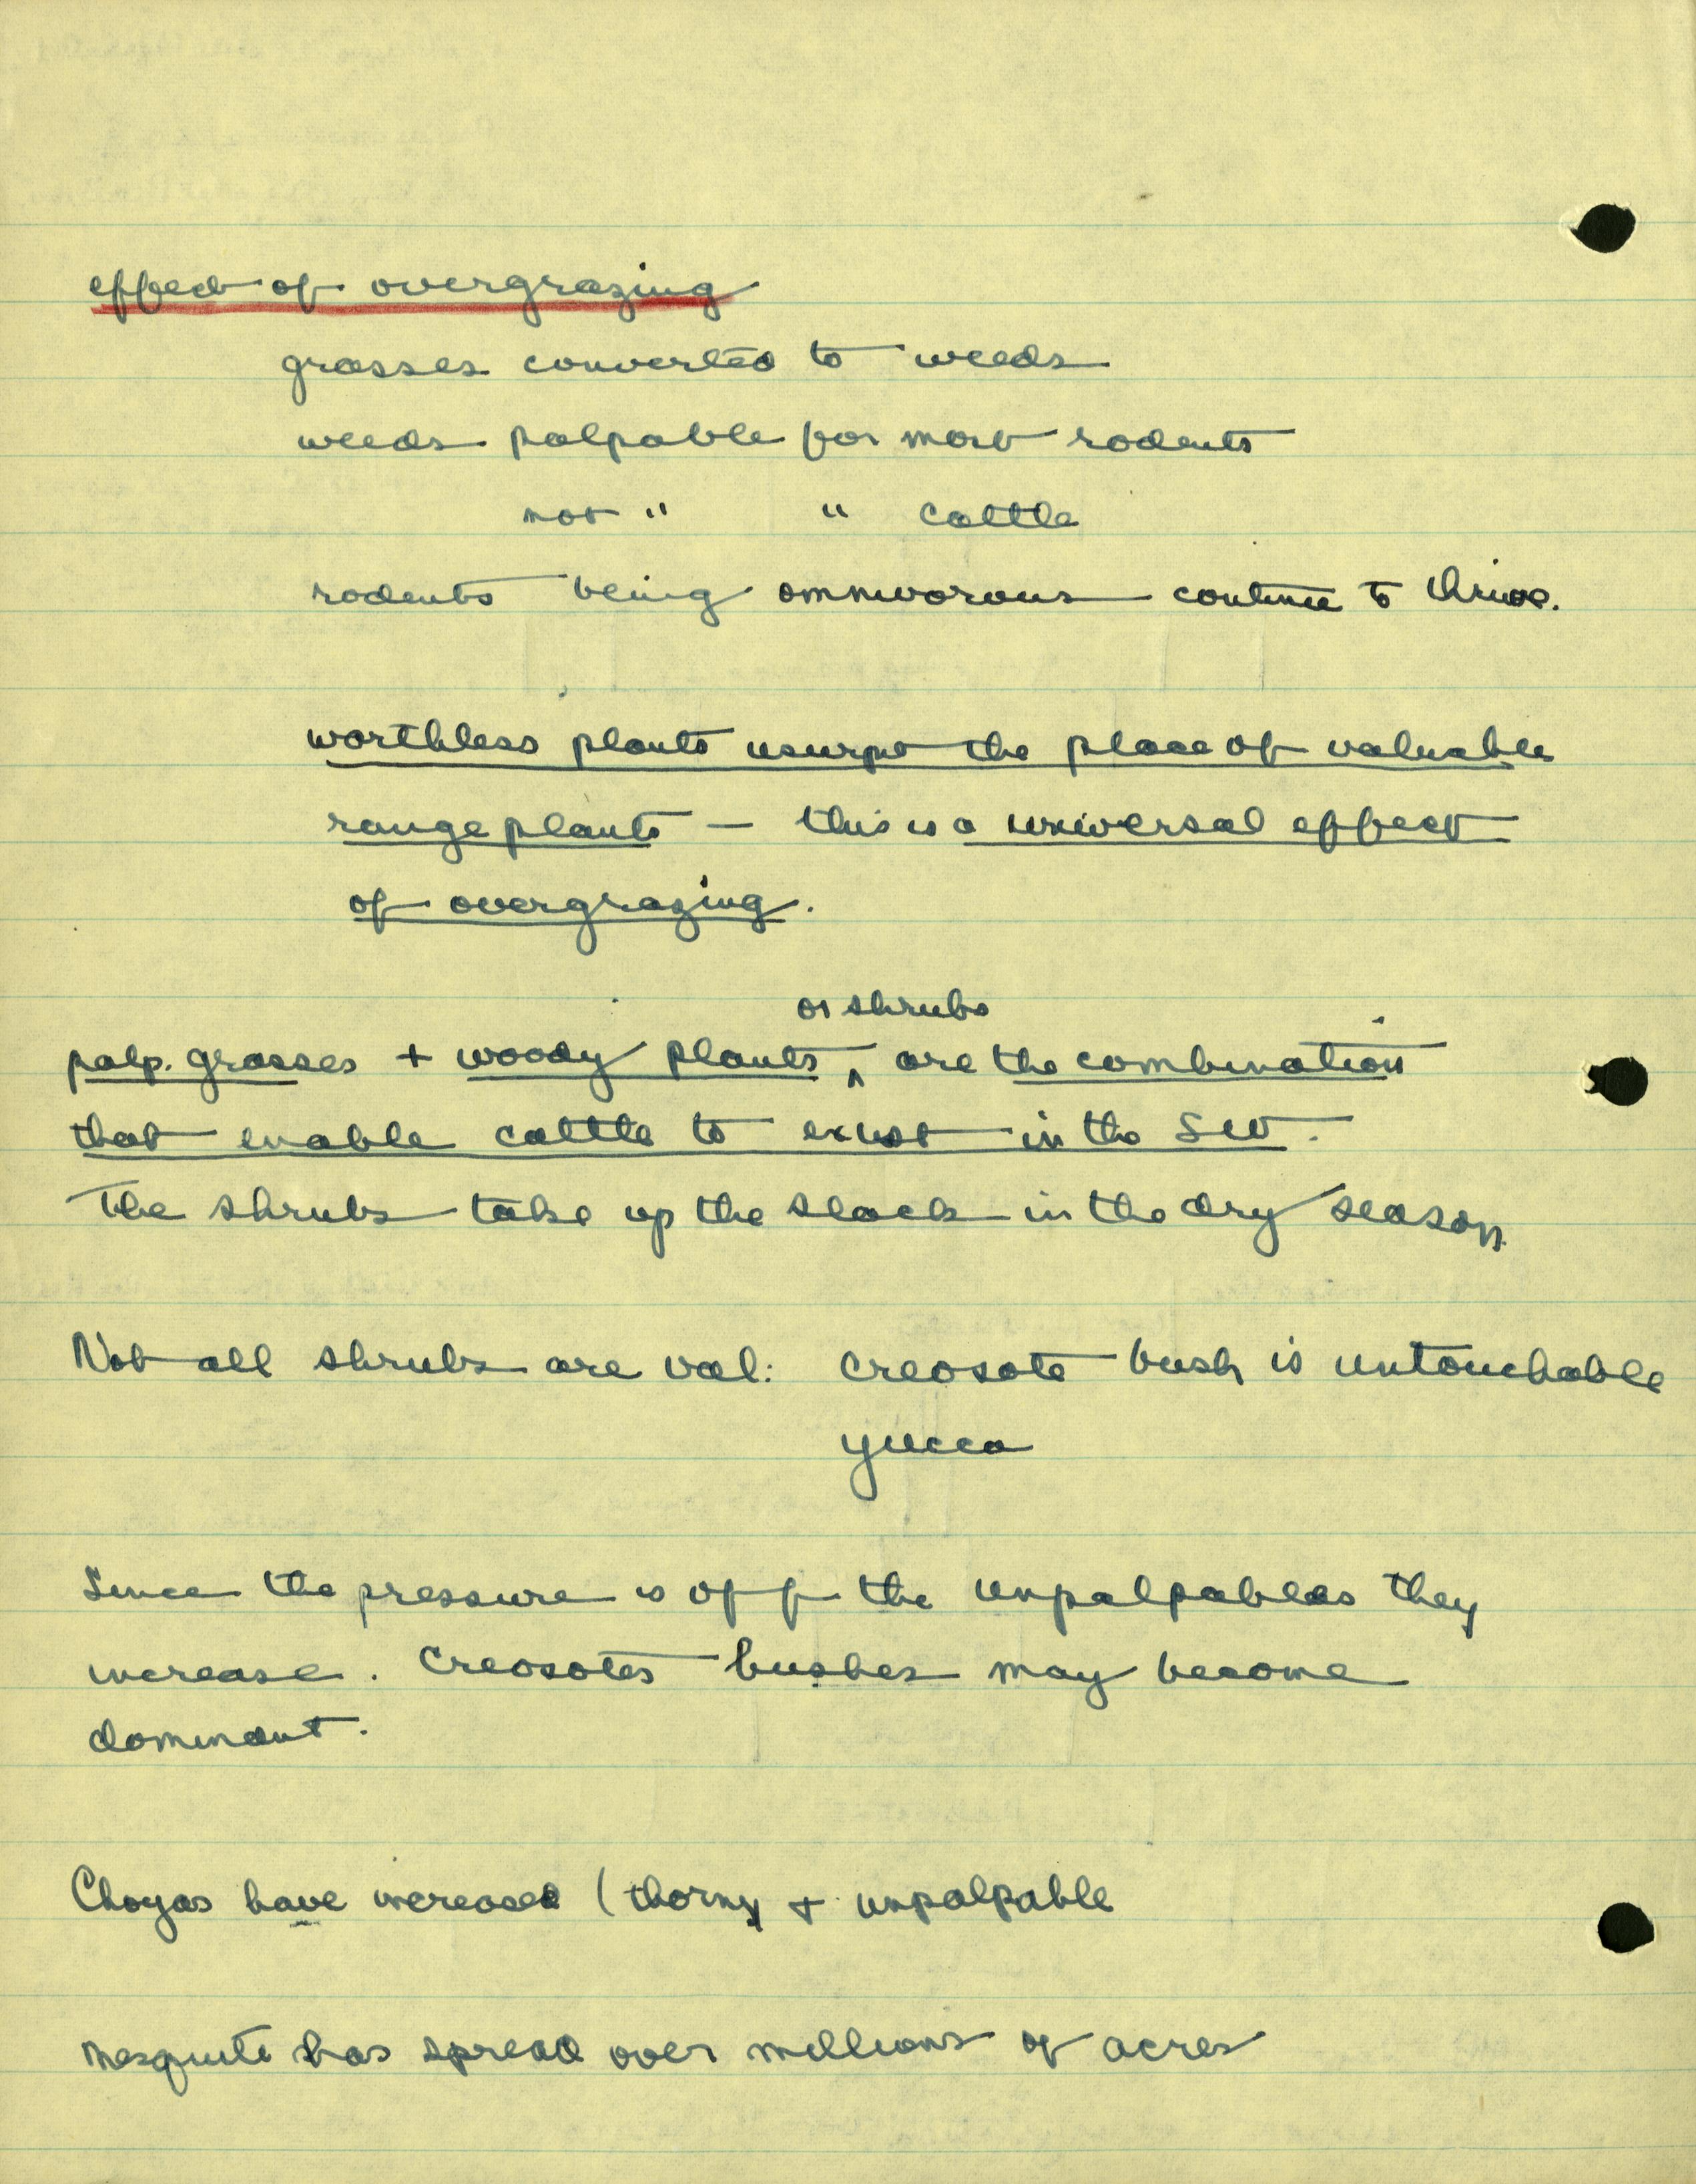 effect of overgrazing
grasses converted to weeds
weeds palpable for most rodents
not " " cattle
rodents being omnivorous continue to thrive.
worthless plants usurp the place of valuable
range plants — this is a universal effect
of overgrazing.
or shrubs
palp. grasses + woody plants ^ are the combination
that enable cattle to exist in the SW.
The shrubs take up the slack in the dry season
Not all shrubs are val: creosote bush is untouchable
yucca
Since the pressure is off the unpalpables they
increase. Creosotes bushes may become
dominant.
Choyas have increased (thorny + unpalpable
mesquite has spread over millions of acres